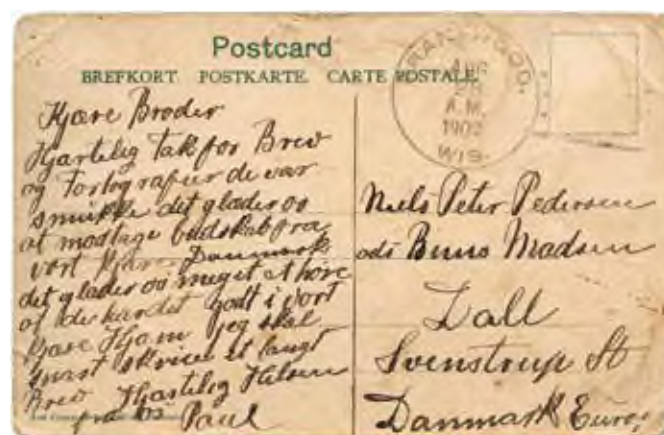 Postcard
BREFKORT. POSTKARTE. CARTE POSTALE.
AUG
A.M.
WIS.
Kjære Broder
Hjartelig Tak for Brev
og Fortografier de var
smukke det glader os
at modtage budskab fra
vort kjære Danmark
det glader os meget at høre
at de har det godt i vort
kjære Hjam jeg skal
snart skrive et langt
Brev Hjartelig Hilsen
fra os Paul
Niels Peter Pedersen
Madsen
Dall
Svenstrup St
Danmark Europ